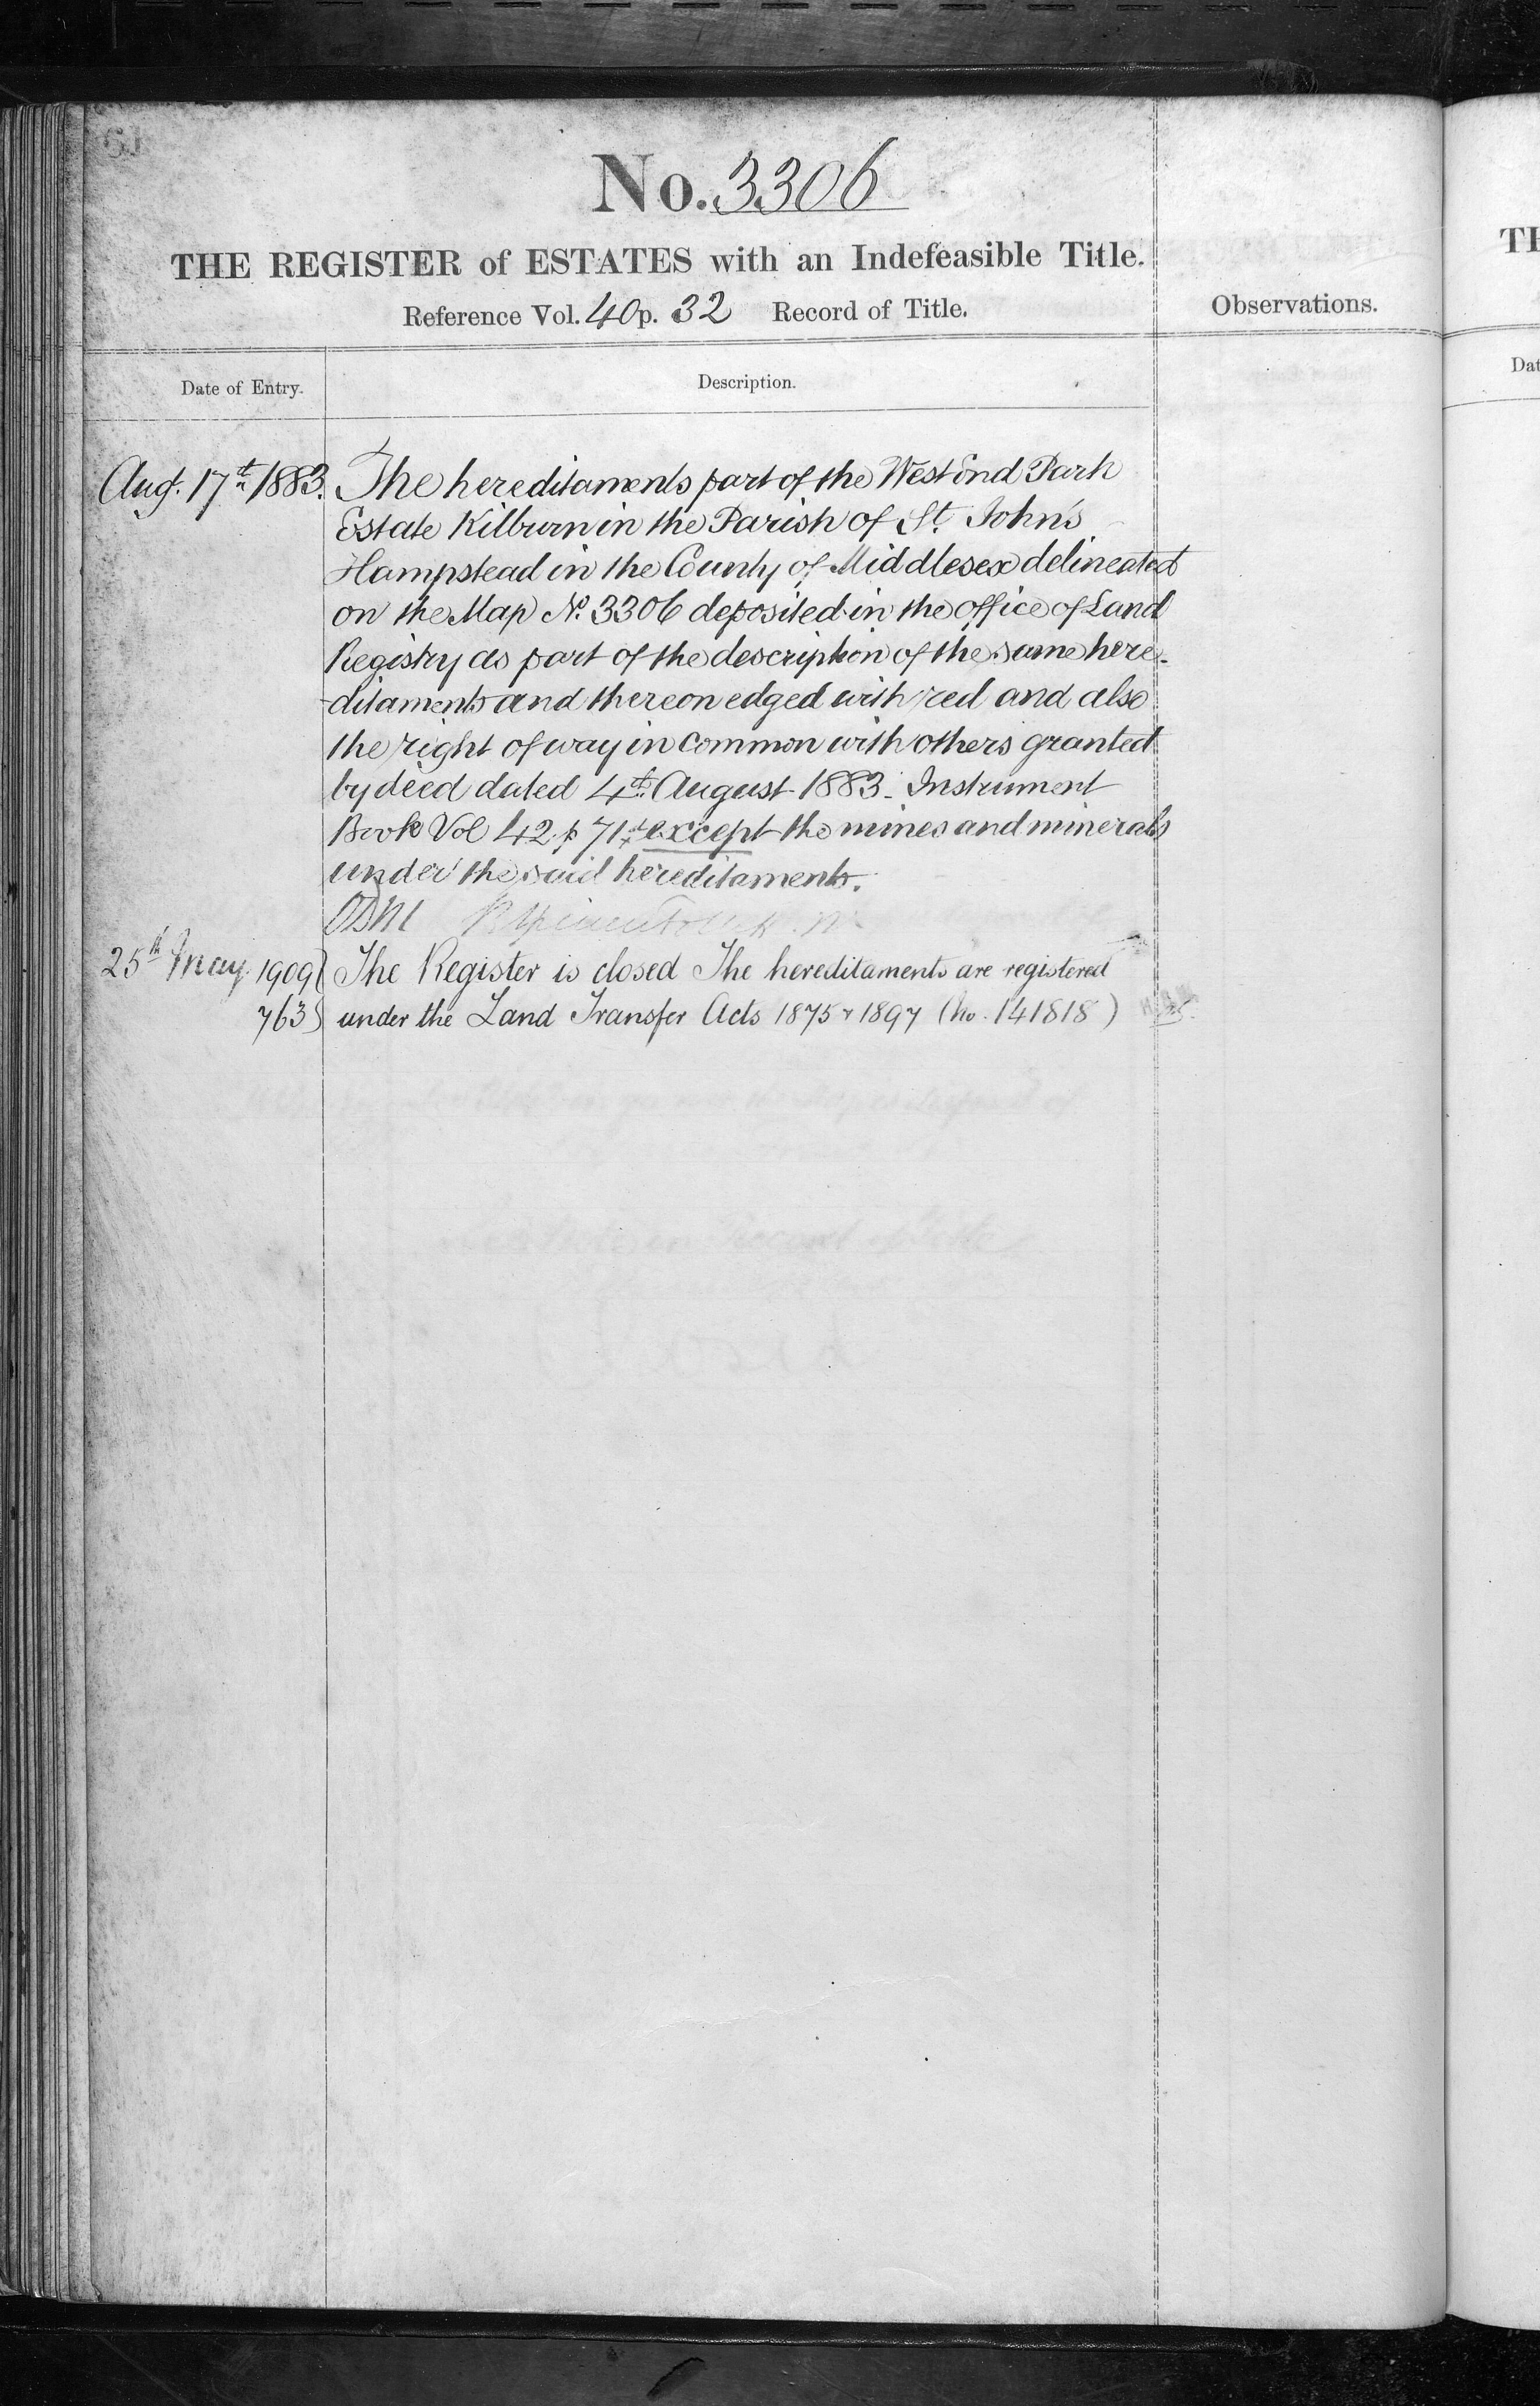 61
No. 3306
THE REGISTER of ESTATES with an Indefeasible Title.
Reference Vol. 40 p. 32 Record of Title.
Observations.
Date of Entry.
Description.
Aug. 17th 1883. The hereditaments part of the West End Park
Estate Kilburn in the Parish of St. John's
Hampstead in the County of Middlesex delineated
on the Map No. 3306 deposited in the office of Land
Registry as part of the description of the same here-
-ditaments and thereon edged with red and also
the right of way in common with others granted
by deed dated 4th August 1883. Instrument
Book Vol 42 p 71 except the mines and minerals
under the said hereditaments.
25th May 1909 The Register is closed The hereditaments are registered
763 under the Land Transfer Acts 1875 & 1897 (No. 141818)